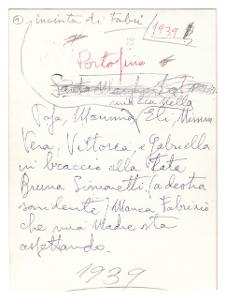 incinta di Fabri
1939
Portofino
Santa Margherita
mia zia Stella
Papa, Mamma, Eli, Mimma
Vera, Vittoria, e Gabriella
in braccio alla tata
Bruna Simonetti (a destra
sorridente) Manca Fabrizio
che mia Madre sta
aspettando.
1939